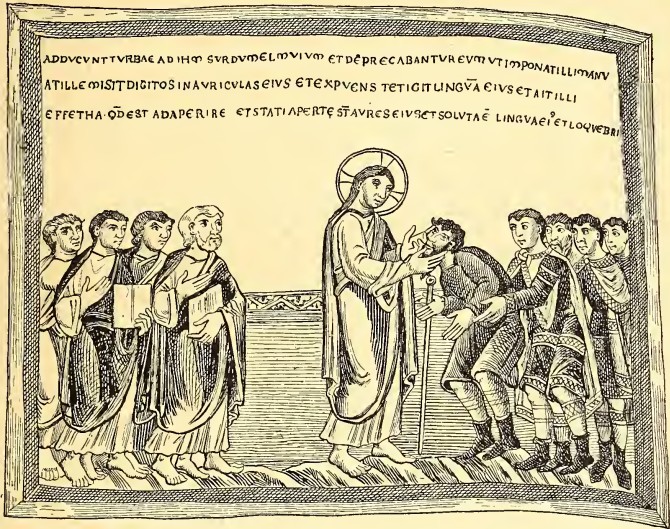 ADDVCVNT TVRBAE AD IHM SVRDVM ELMVIVM ET DEPRECABANTVR EVM VT IMPONAT ILLI MANV
AT ILLE MISIT DIGITOS IN AVRICVLAS EIVS ET EXPVENS TETIGIT LINGVĀ EIVS ET AIT ILLI
EFFETHA · QD̄ EST ADAPERIRE ET STATI APERTĘ ST̄ AVRES EIVS ET SOLVTA Ē LINGVA EI⁹ ET LOQVEB